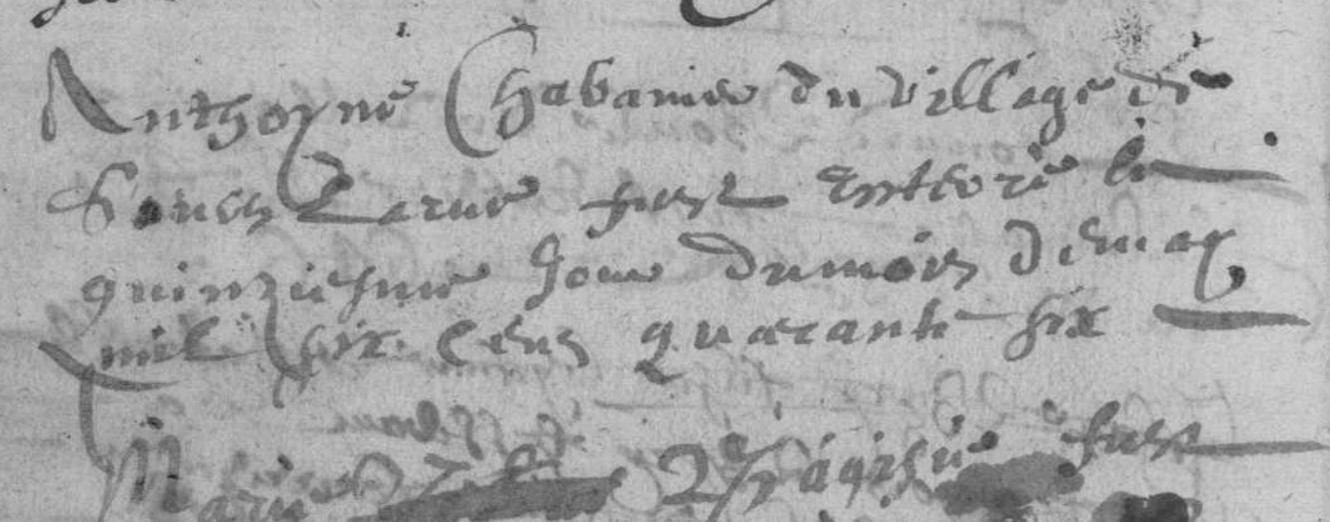 Anthoyne Chabanier du village de
Soubz Larue fust enterré le
quinziesme Jour du mois de may
mil six cens quarante six
Marie fust